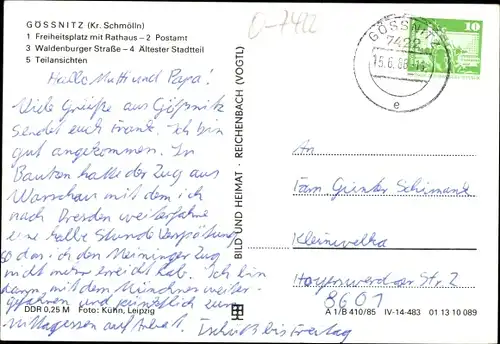 GÖSSNITZ (Kr. Schmölln)
1 Freiheitsplatz mit Rathaus – 2 Postamt
3 Waldenburger Straße – 4 Ältester Stadtteil
5 Teilansichten
0-7422
Hallo Mutti und Papa!
Viele Grüße aus Gößnitz
sendet euch Frank. Ich bin
gut angekommen. In
Bautzen hatte der Zug aus
Warschau mit dem ich
nach Dresden weiterfahre
eine halbe Stunde Verspätung
so das ich den Meininger Zug
nicht mehr erreicht hab. Ich bin
dann mit dem Münchner weiter-
gefahren und pünktlich zum
Mittagessen auf Arbeit. Tschüß bis Freitag
DDR 0,25 M Foto: Kühn, Leipzig
BILD UND HEIMAT · REICHENBACH (VOGTL)
GÖSSNITZ
7422
15.6.88
e
10
An
Fam Günter Schimank
Kleinwelka
Hoyerswerdaer Str. 2
8601
A 1/B 410/85 IV-14-483 01 13 10 089